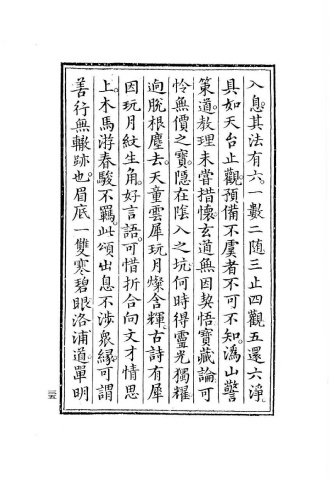 入息。其法有六。一數二隨三止四觀五還六淨。
具如天台止觀。預備不虞者不可不知。溈山警
策道。教理未甞措懷。玄道無因契悟。寶藏論。可
怜無價之寶。隱在陰入之坑。何時得靈光獨耀
迥脫根塵去。天童雲犀玩月燦含輝。古詩有犀
因玩月紋生角。好言語。可惜折合向文才情思
上。木馬游春駿不羈。此頌出息不涉衆緣。可謂
善行無轍跡也。眉底一雙寒碧眼。洛浦道。單明
三五